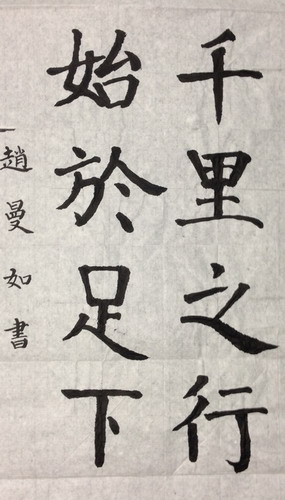 千里之行
始於足下
趙曼如書